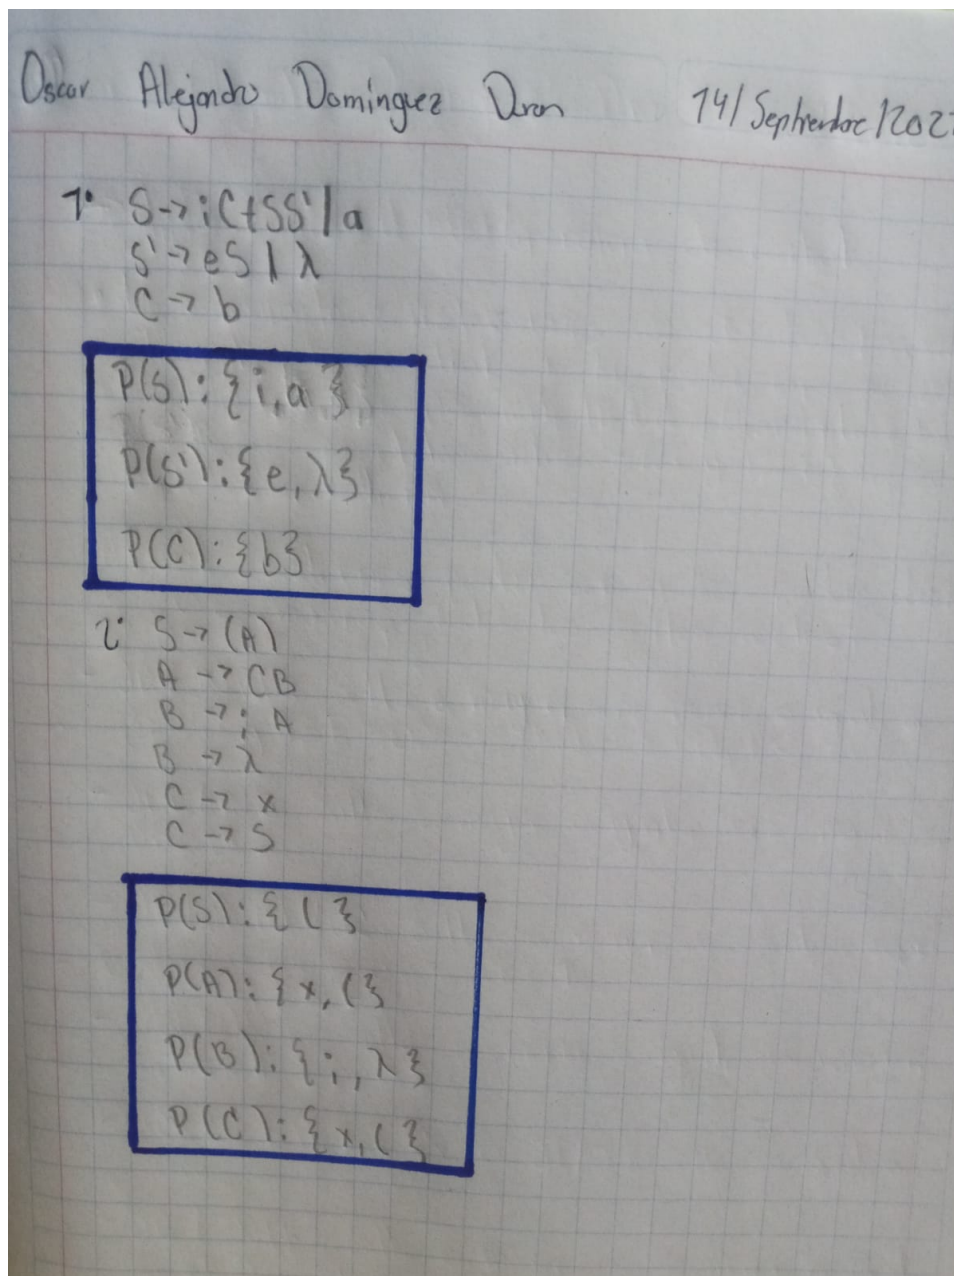 Oscar Alejandro Domínguez Duran 14/Septiembre/202
1· S→iCtSS'|a
S'→eS|λ
C→b
P(S):{i,a}
P(S'):{e,λ}
P(C):{b}
2· S→(A)
A→CB
B→;A
B→λ
C→x
C→S
P(S):{(}
P(A):{x,(}
P(B):{;,λ}
P(C):{x,(}